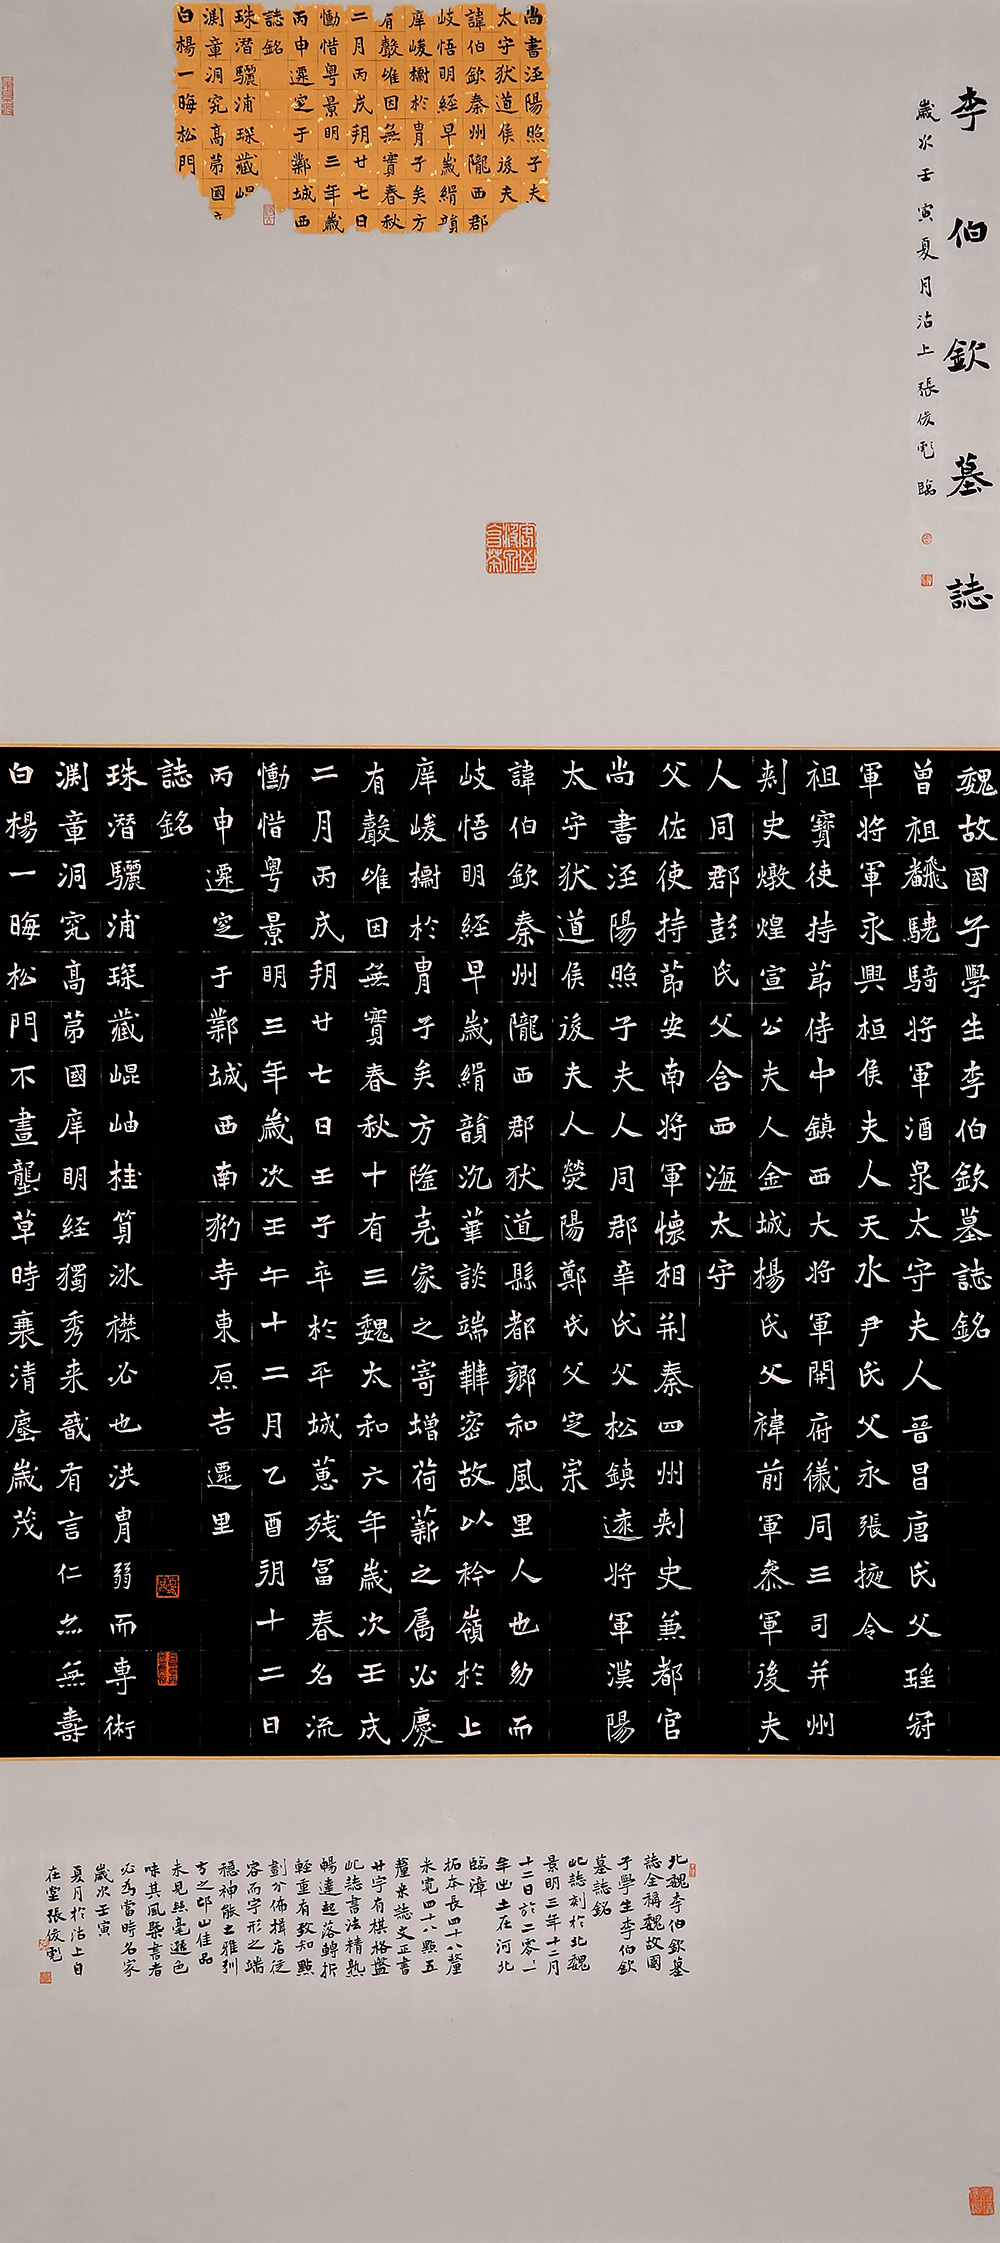 李伯欽墓誌
歲次壬寅夏月沽上張俊彪臨
尚書涇陽照子夫
太守狄道侯後夫
諱伯欽秦州隴西郡
岐悟明經早歲緝韻
庠峻櫥於胄子矣方
有聲唯因無賓春秋
二月丙戌朔廿七日
慟惜粵景明三年歲
丙申遷窆于鄴城西
誌銘
珠潛驪浦琛藏崐
渊章洞究高苐國
白楊一晦松門
魏故國子學生李伯欽墓誌銘
曾祖飜驍騎將軍酒泉太守夫人晉昌唐氏父瑶冠
軍將軍永興桓侯夫人天水尹氏父永張掖令
祖寶使持節侍中鎮西大將軍開府儀同三司并州
刺史燉煌宣公夫人金城楊氏父禕前軍叅軍後夫
人同郡彭氏父含西海太守
父佐使持節安南將軍懷相荊秦四州刺史兼都官
尚書涇陽照子夫人同郡辛氏父松鎮遠將軍漢陽
太守狄道侯後夫人熒陽鄭氏父定宗
諱伯欽秦州隴西郡狄道縣都鄉和風里人也幼而
岐悟明經早歲緝韻沉華談端辯密故以衿嶺於上
庠峻櫥於胄子矣方隆克家之寄增荷薪之属必慶
有聲唯因無賓春秋十有三魏太和六年歲次壬戌
二月丙戌朔廿七日壬子卒於平城蕙殘冨春名流
慟惜粵景明三年歲次壬午十二月乙酉朔十二日
丙申遷窆于鄴城西南豹寺東原吉遷里
誌銘
珠潛驪浦琛藏崐岫桂筭冰襟必也洪胄弱而專術
渊章洞究高苐國庠明經獨秀来哉有言仁亦無壽
白楊一晦松門不晝壟草時蘘清塵歲茂
北魏李伯欽墓
誌全稱魏故國
子學生李伯欽
墓誌銘
此誌刻於北魏
景明三年十二月
十二日於二零〻一
年出土在河北
臨漳
拓本長四十八釐
米寬四十八點五
釐米誌文正書
廿字有棋格盤
此誌書法精熟
暢達起落轉折
輕重有致知點
劃分佈揖
容而字形之端
穩神態之雅列
方之邙山佳品
未見絲毫遜色
味其風槩書者
必為當時名家
歲次壬寅
夏月於沽上自
在堂張俊彪